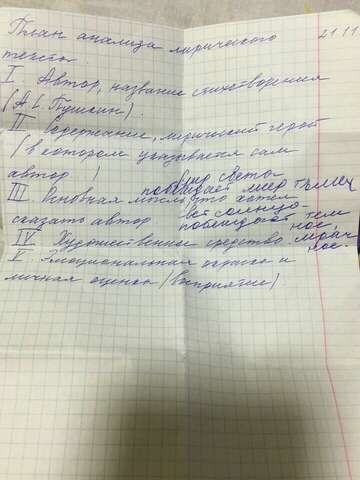 План анализа лирического 21.11
текста
I Автор, название стихотворения
(А.С. Пушкин).
II Содержание, лирический герой
(в котором указывается сам
автор ) мир света
побеждает мир тьмы
III. Основная мысль, что хотел
сказать автор всё солнце-
побеждает тем
ное,
IV Художественные средства. мрач
ное.
V Эмоциональная окраска и
личная оценка (восприятие).